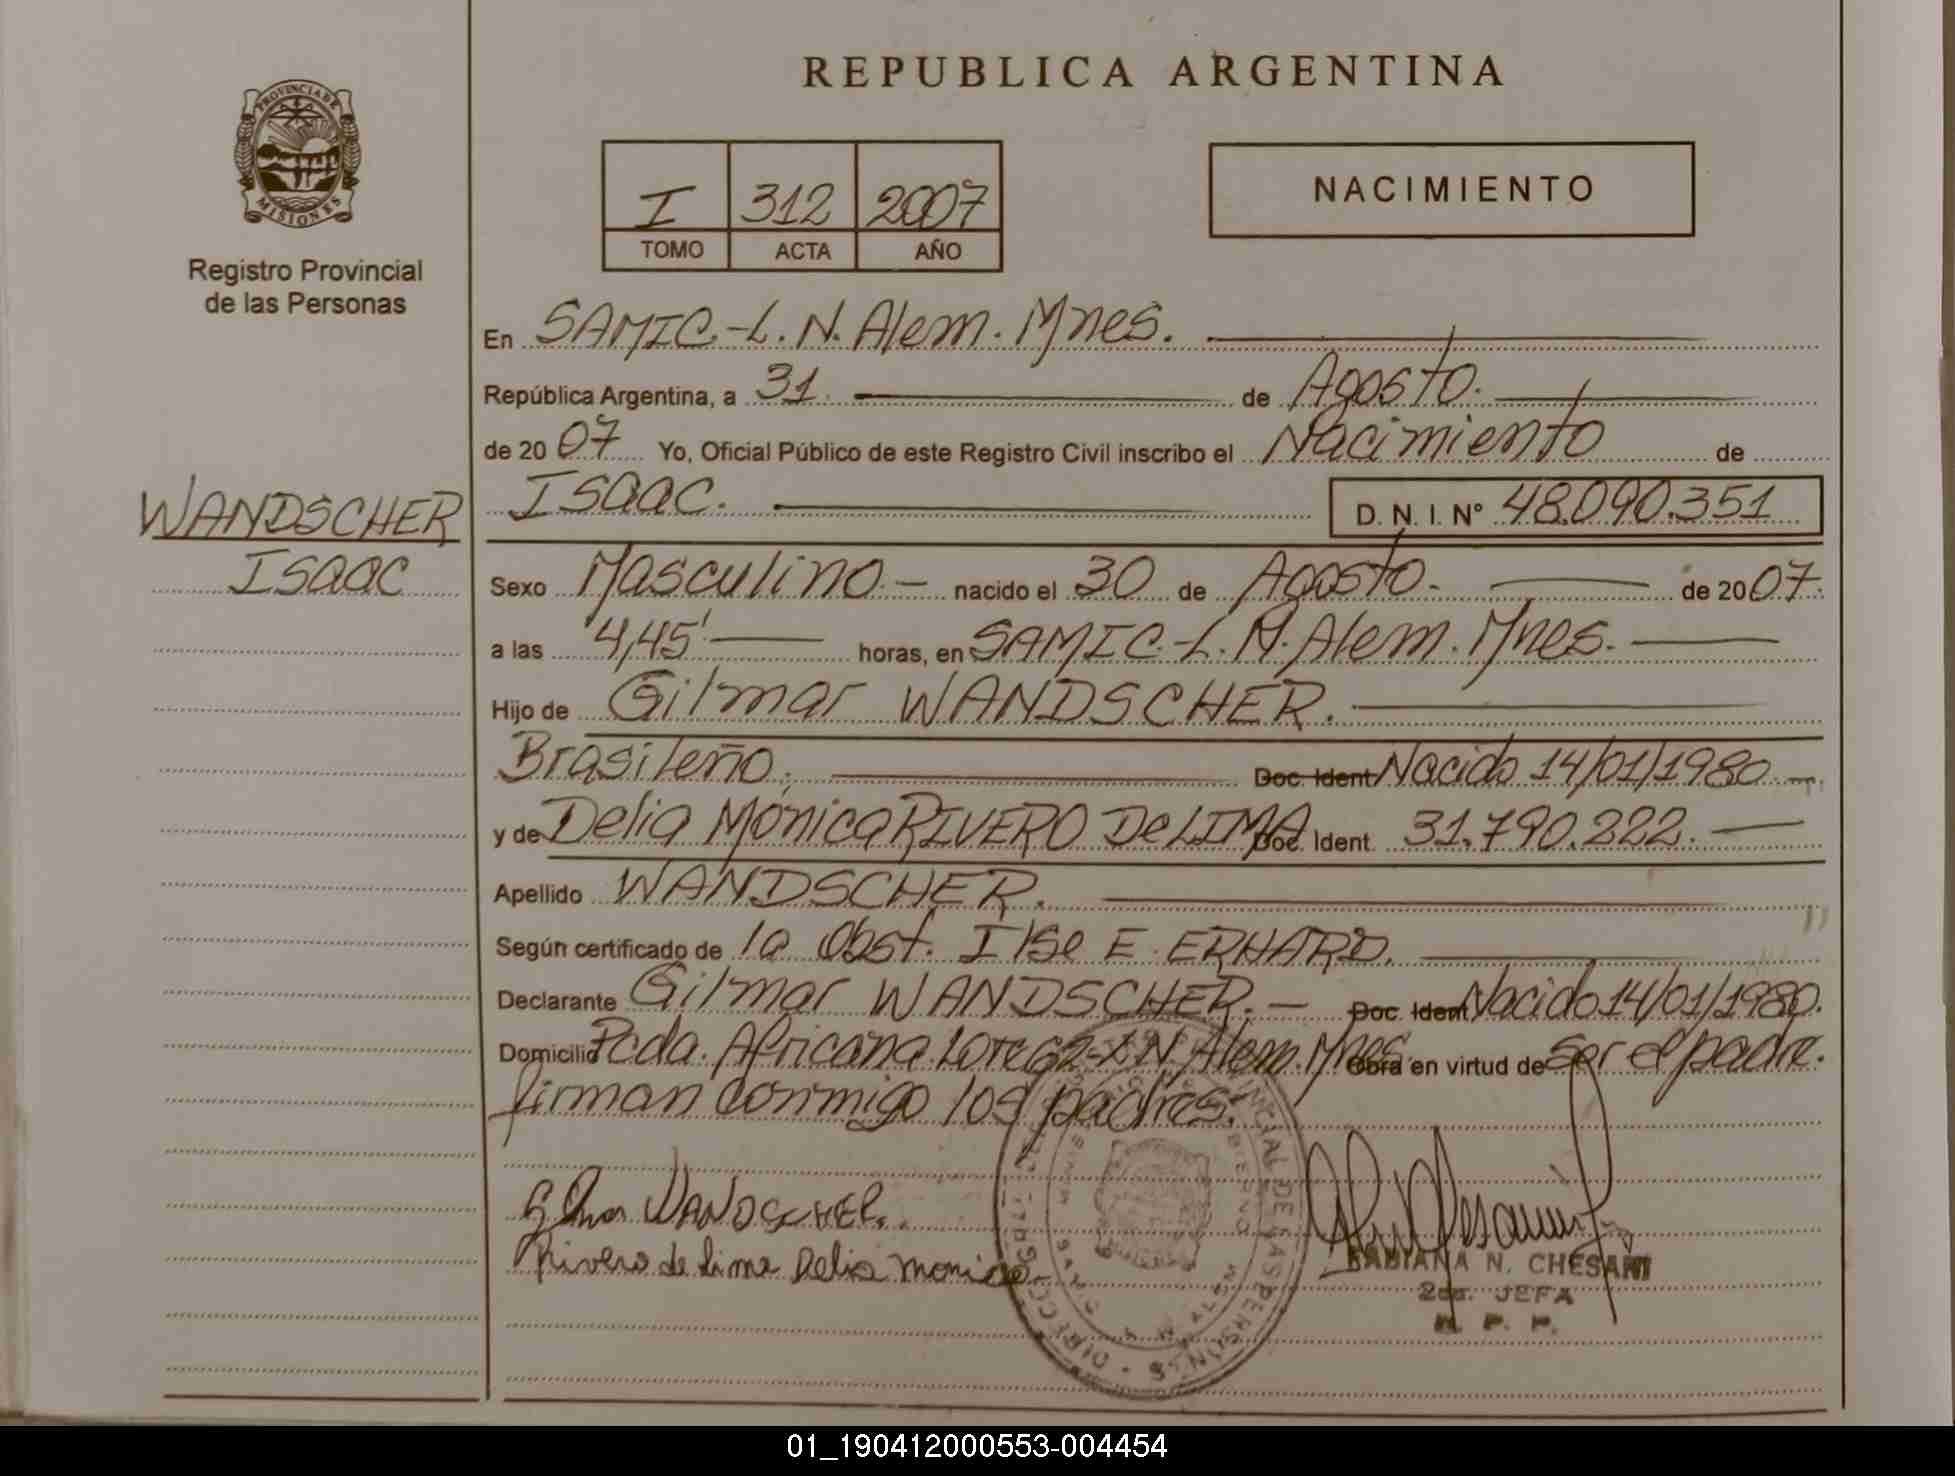 REPUBLICA ARGENTINA
PROVINCIA DE
MISIONES
Registro Provincial
de las Personas
I 312 2007
TOMO ACTA AÑO
NACIMIENTO
En SAMIC.-L.N.Alem.Mnes.
República Argentina, a 31. de Agosto.
de 2007 Yo, Oficial Público de este Registro Civil inscribo el Nacimiento de
WANDSCHER
ISaac
ISaac. D. N. I. Nº 48.090.351
Sexo Masculino.- nacido el 30 de Agosto.- de 2007.
a las 4,45' horas, en SAMIC.-L.N.Alem.Mnes.
Hijo de Gilmar WANDSCHER.
Brasileño, Doc. Ident. Nacido 14/01/1980
y de Delia Mónica RIVERO De LIMA Doc. Ident. 31.790.222.
Apellido WANDSCHER.
Según certificado de la Obst. Ilse E. ERHARD.
Declarante Gilmar WANDSCHER.- Doc. Ident. Nacido 14/01/1980.
Domicilio Pcda. Africana Lote 62-L N. Alem. Mnes. Obra en virtud de Ser el padre.
firman conmigo los padres.
WANDSCHER.
Rivero de Lima Delia Monica
FABIANA N. CHESANI
2da. JEFA
R. P. P.
01_190412000553-004454